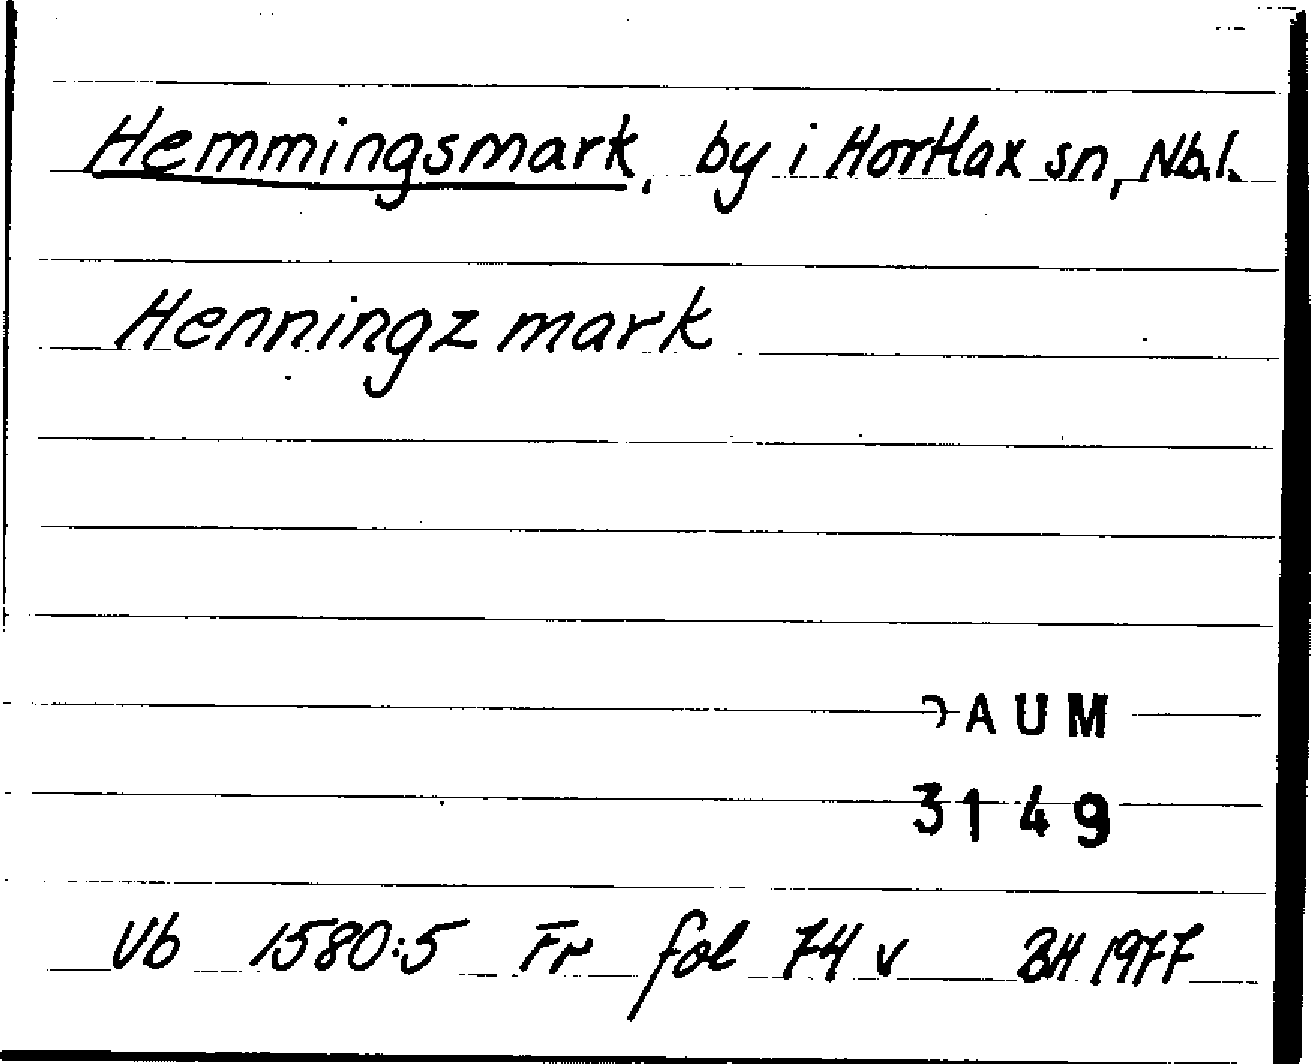 Hemmingsmark, by i Hortlax sn, Nb.l.
Henningz mark
DAUM
3149
Vb 1580:5 Fr fol 74 v BH 1977